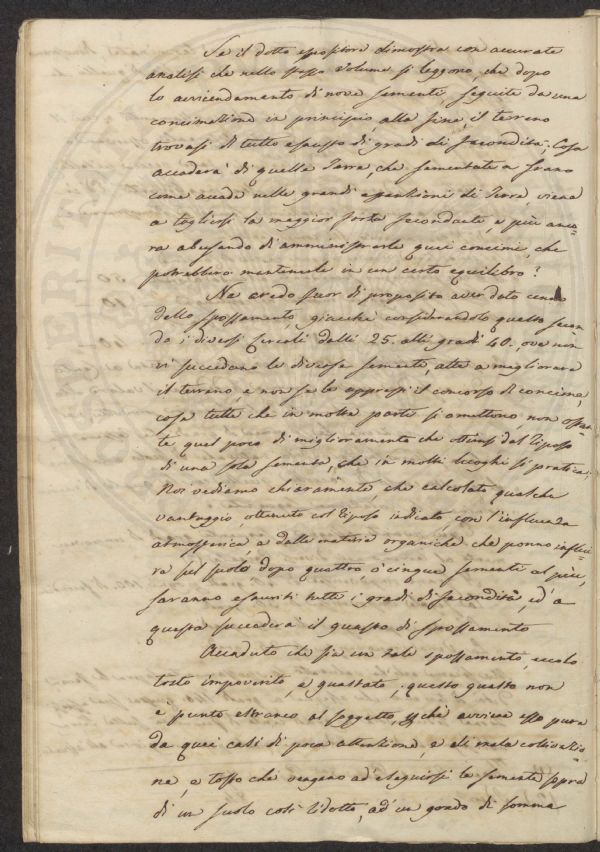 Se il dotto espositore dimostra con accurate
analisi che nello stesso volume si leggono, che dopo
lo avvicendamento di nove sementi, seguite da una
concimazione in principio, alla fine, il terreno
trovasi di tutto esausto di gradi di fecondità; Cosa
accaderà di quella Terra, che sementata a grano
come accade nelle grandi espansioni di Terra, viene
a togliersi la maggior parte fecondante, e più anco=
ra abusando d'amministrarle quei concimi, che
potrebbero mantenerle in un certo equilibrio?
Ne credo fuor di proposito aver dato cenno
dello spossamento, giacchè considerandolo questo secon
do i diversi cereali dalli 25. alli gradi 40., ove non
vi succedano le diverse sementi, atte a migliorare
il terreno e non se le appresti il concorso di concime,
cose tutte che in molta parte si omettono, non ostan
te quel poco di miglioramento che ottiensi dal riposo
di una sola sementa, che in molti luoghi si pratica;
Noi vediamo chiaramente, che calcolato qualche
vantaggio ottenuto col riposo indicato, con l'influenza
atmosferica, e dalle materie organiche che ponno influi=
re sul suolo dopo quattro, o cinque sementi al più,
saranno esauriti tutti i gradi di fecondità, ed a
questa succederà il guasto di spossamento
Accaduto che sia un tale spossamento, eccolo
tosto impoverito, e guastato; questo guasto non
è punto estraneo al soggetto, chè avviene esso pure
da quei casi di poca attenzione, e di mala coltivazio
ne, e tosto che vengano ad eseguirsi le sementi sopra
di un suolo così ridotto, ad un grado di somma